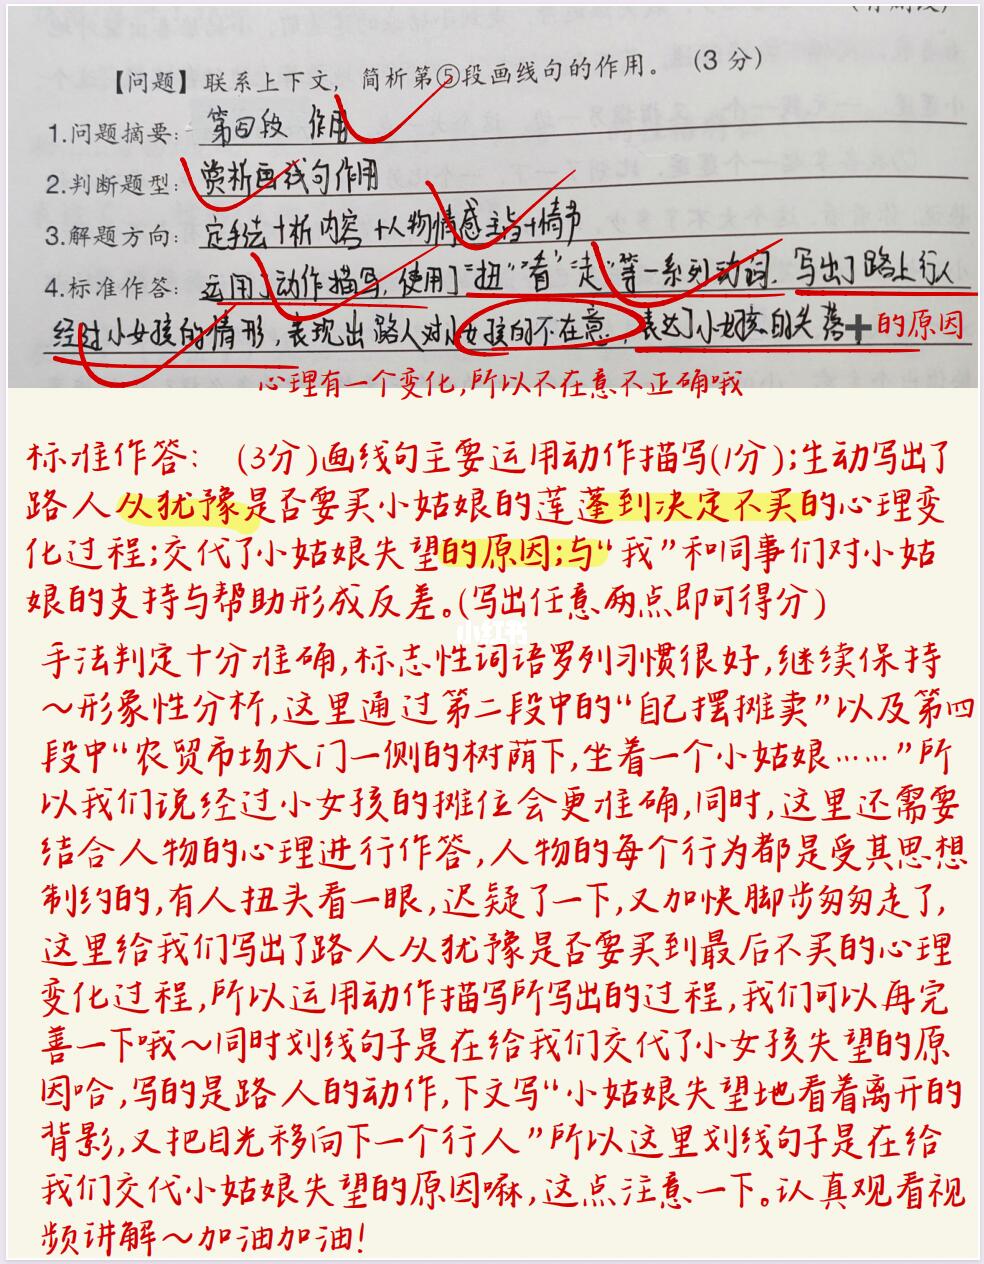 【问题】联系上下文，简析第⑤段画线句的作用。（3 分）
1.问题摘要：第四段 作用
2.判断题型：赏析画线句作用
3.解题方向：定手法+析内容+人物情感主旨+情节
4.标准作答：运用了动作描写，使用了“扭”“看”“走”等一系列动词，写出了路上行人
经过小女孩的情形，表现出路人对小女孩的不在意，表达了小女孩的失落+的原因
心理有一个变化,所以不在意不正确哦
标准作答：(3分)画线句主要运用动作描写(1分);生动写出了
路人从犹豫是否要买小姑娘的莲蓬到决定不买的心理变
化过程;交代了小姑娘失望的原因;与“我”和同事们对小姑
娘的支持与帮助形成反差。(写出任意两点即可得分)
小红书
手法判定十分准确,标志性词语罗列习惯很好,继续保持
～形象性分析,这里通过第二段中的“自己摆摊卖”以及第四
段中“农贸市场大门一侧的树荫下,坐着一个小姑娘……”所
以我们说经过小女孩的摊位会更准确,同时,这里还需要
结合人物的心理进行作答,人物的每个行为都是受其思想
制约的,有人扭头看一眼,迟疑了一下,又加快脚步匆匆走了,
这里给我们写出了路人从犹豫是否要买到最后不买的心理
变化过程,所以运用动作描写所写出的过程,我们可以再完
善一下哦～同时划线句子是在给我们交代了小女孩失望的原
因哈,写的是路人的动作,下文写“小姑娘失望地看着离开的
背影,又把目光移向下一个行人”所以这里划线句子是在给
我们交代小姑娘失望的原因嘛,这点注意一下。认真观看视
频讲解～加油加油!